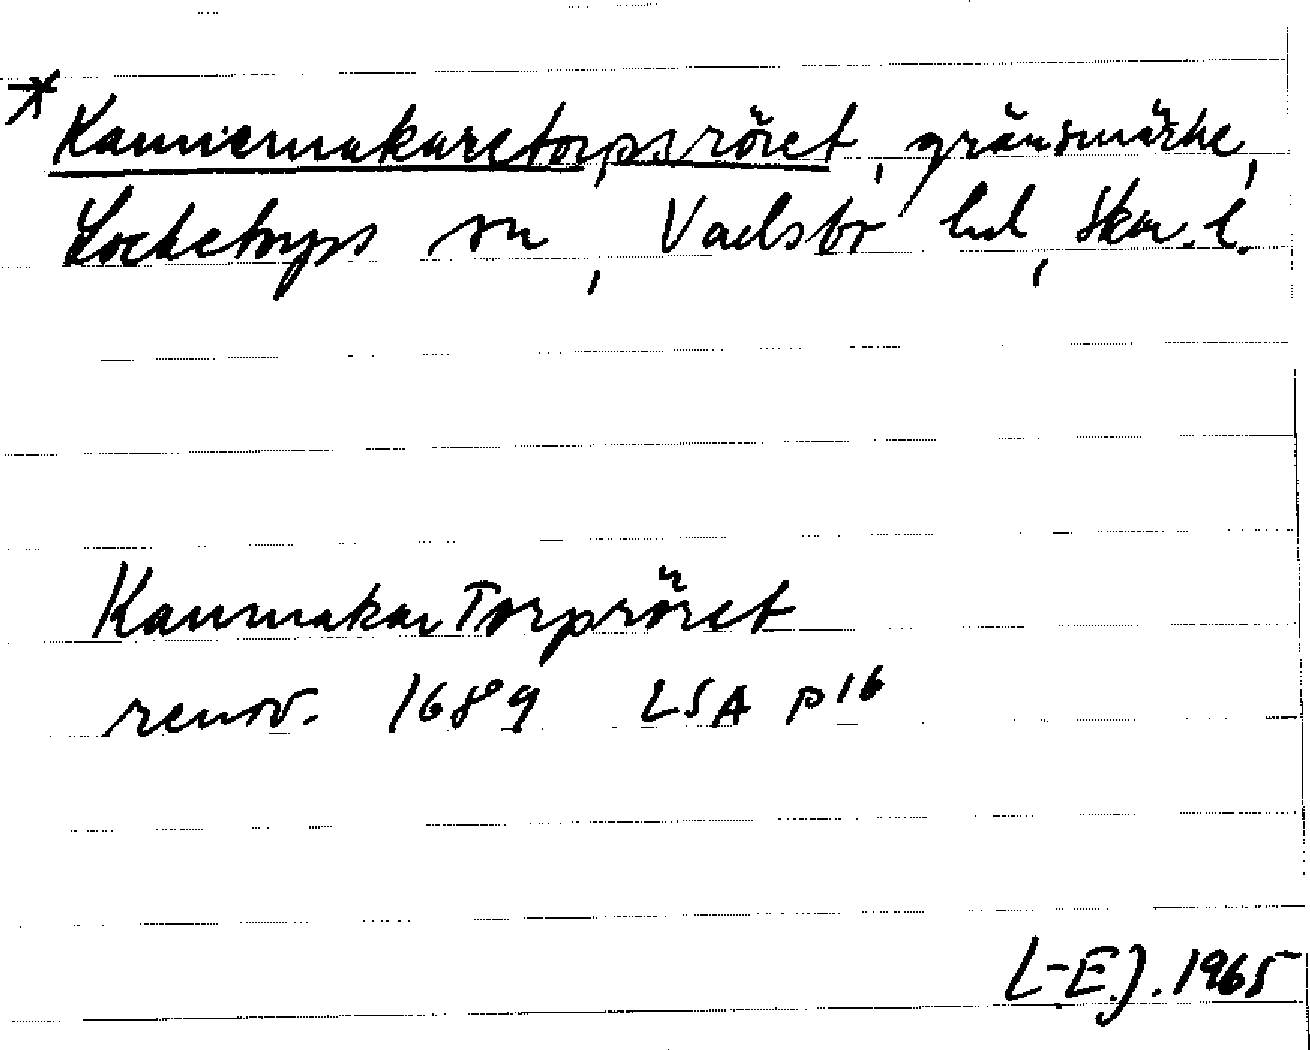 * Kannemakaretorpsröret, gränsmärke,
Locketorps sn, Vadsbr hd, Skar. l.
KanmakarTorpröret
renov. 1689 LSA P16
L-EJ. 1965